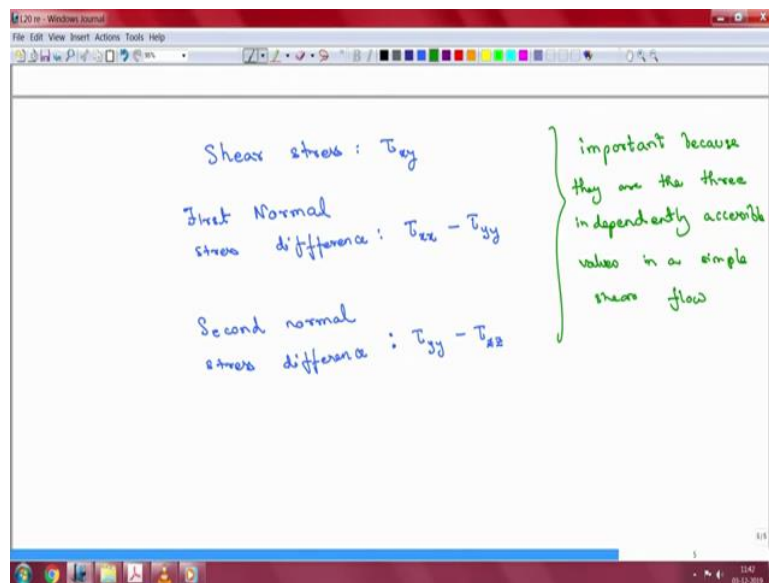 L20 re - Windows Journal
File Edit View Insert Actions Tools Help
Shear stress : τxy
First Normal
stress difference : τxx - τyy
Second normal
stress difference : τyy - τzz
important because
they are the three
independently accessible
values in a simple
shear flow
5
11:42